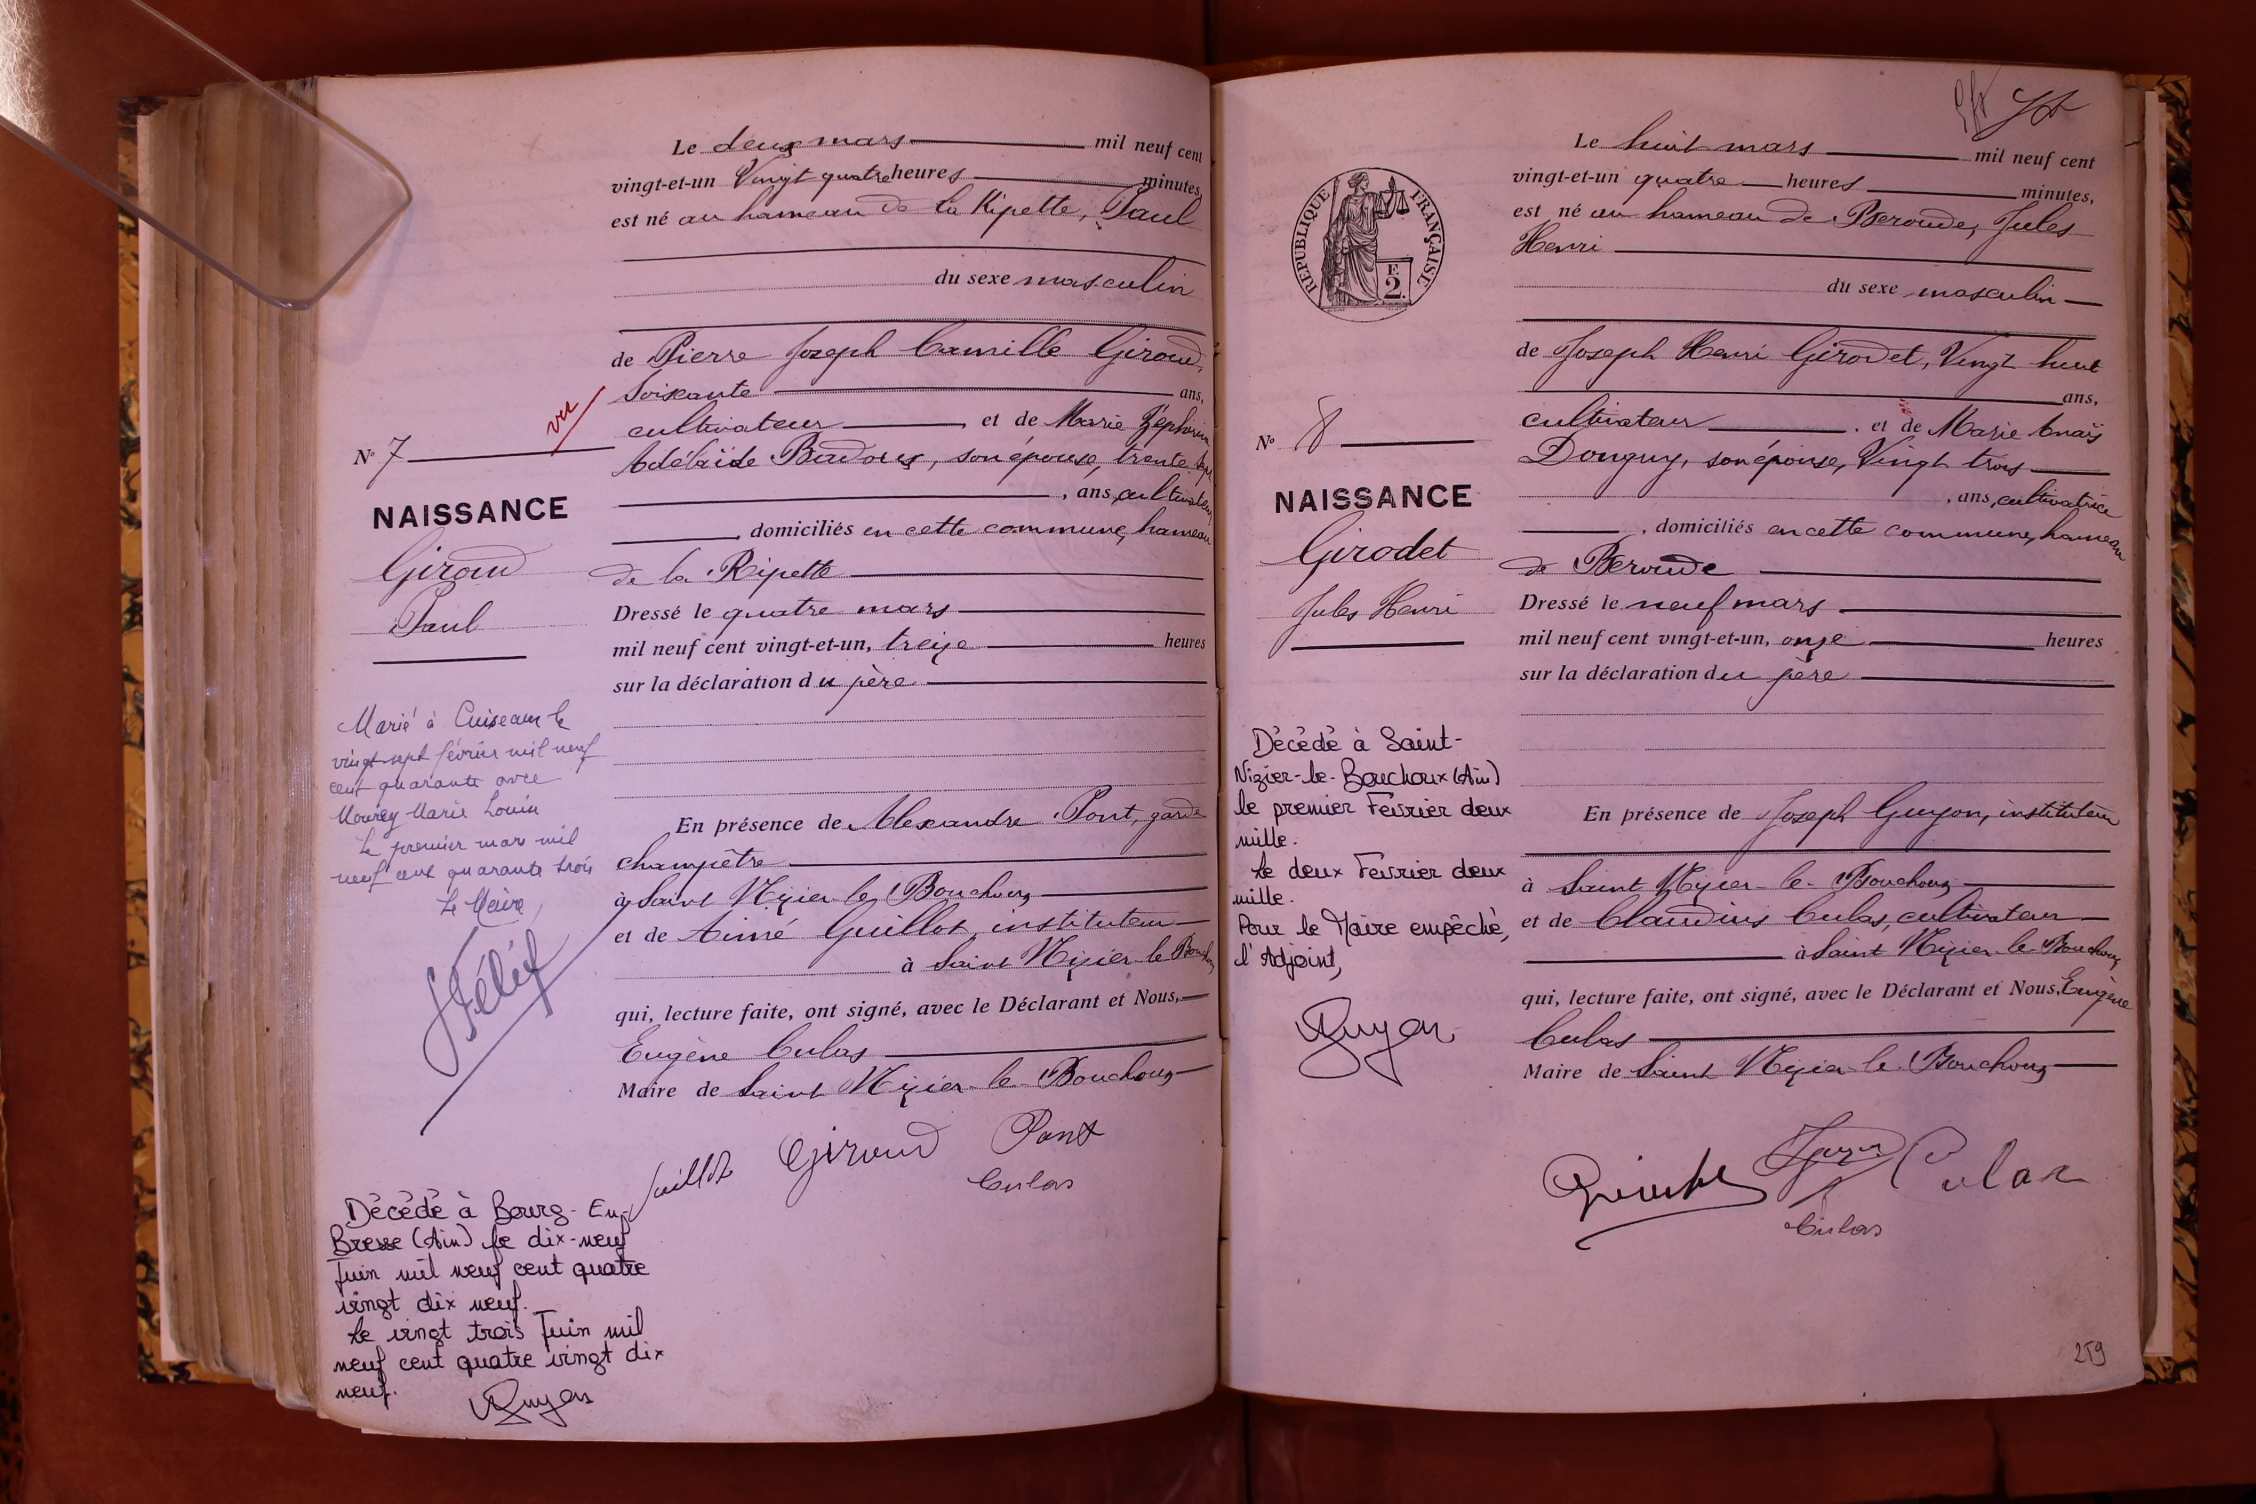 Le deux mars mil neuf cent
vingt-et-un Vingt quatre heures minutes,
est né au hameau de la Ripette, Paul
du sexe masculin
de Pierre Joseph Camille Giroud,
Soixante ans,
cultivateur et de Marie Zéphirine
Adélaïde Badoux, son épouse, trente sept
, ans, cultivateurs
, domiciliés en cette commune, hameau
de la Ripette
Dressé le quatre mars
mil neuf cent vingt-et-un, treize heures
sur la déclaration du père
En présence de Alexandre Pont, garde
champêtre
à Saint Nizier le Bouchoux
et de Aimé Guillot, instituteur
à Saint Nizier le Bouchoux
qui, lecture faite, ont signé, avec le Déclarant et Nous,
Eugène Culas
Maire de Saint Nizier-le-Bouchoux
Guillot Giroud Pont
Culas
vu
No 7
NAISSANCE
Giroud
Paul
Marié à Cuiseaux le
vingt sept février mil neuf
cent quarante avec
Mourey Marie Louise
Le premier mars mil
neuf cent quarante trois
Le Maire,
Décédé à Bourg-En-
Bresse (Ain) le dix-neuf
Juin mil neuf cent quatre
vingt dix neuf.
Le vingt trois Juin mil
neuf cent quatre vingt dix
neuf.
Guyon
Le huit mars mil neuf cent
vingt-et-un quatre heures minutes,
est né au hameau de Beroude, Jules
Henri
du sexe masculin
de Joseph Henri Girodet, Vingt huit
ans,
cultivateur et de Marie Anaïs
Donguy, son épouse, Vingt trois
, ans, cultivatrice
, domiciliés en cette commune, hameau
de Beroude
Dressé le neuf mars
mil neuf cent vingt-et-un, onze heures
sur la déclaration du père
En présence de Joseph Guyon, instituteur
à Saint Nizier-le-Bouchoux
et de Claudius Culas, cultivateur
à Saint Nizier-le-Bouchoux
qui, lecture faite, ont signé, avec le Déclarant et Nous, Eugène
Culas
Maire de Saint Nizier-le-Bouchoux
Culas
Culas
RÉPUBLIQUE FRANÇAISE
F.
2.
No 8
NAISSANCE
Girodet
Jules Henri
Décédé à Saint-
Nizier-le-Bouchoux (Ain)
le premier Février deux
mille.
Le deux Février deux
mille.
Pour le Maire empêché,
l'Adjoint,
Guyon
259